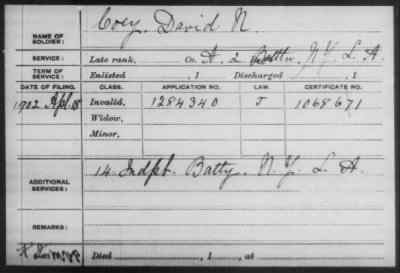 NAME OF SOLDIER: Coey, David N.
SERVICE: Late rank, Co. A, 2 Battln, N.Y. L. A.
TERM OF SERVICE: Enlisted , 1 Discharged , 1
DATE OF FILING. CLASS. APPLICATION NO. LAW. CERTIFICATE NO.
1902 Apl. 18 Invalid, 1284340 J 1068671
Widow,
Minor,
ADDITIONAL SERVICES: 14 Indpt. Batty. N. Y. L. A.
REMARKS:
Died , 1 , at